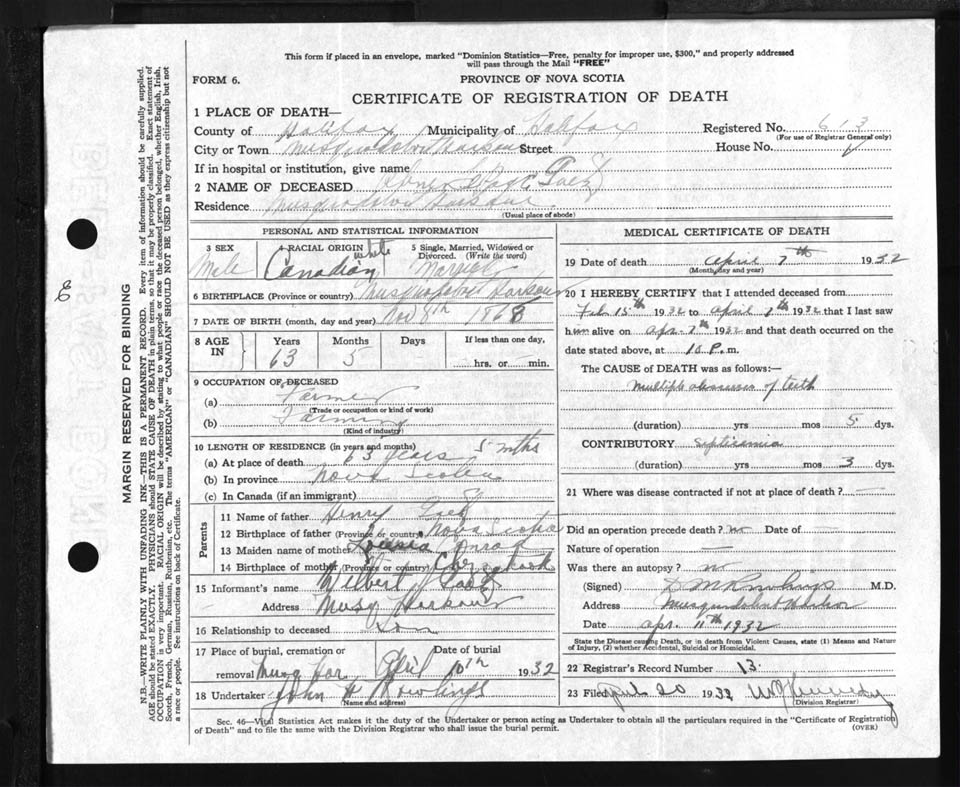 This form if placed in an envelope, marked "Dominion Statistics—Free, penalty for improper use, $300," and properly addressed
will pass through the Mail "FREE"
FORM 6.
PROVINCE OF NOVA SCOTIA
CERTIFICATE OF REGISTRATION OF DEATH
1 PLACE OF DEATH—
County of Halifax Municipality of Halifax Registered No. 613
(For use of Registrar General only)
City or Town Musquodoboit Harbour Street House No.
If in hospital or institution, give name
2 NAME OF DECEASED
Residence Musquodoboit Harbour
(Usual place of abode)
PERSONAL AND STATISTICAL INFORMATION
3 SEX Male
4 RACIAL ORIGIN white Canadian
5 Single, Married, Widowed or Divorced. (Write the word) Married
6 BIRTHPLACE (Province or country) Musquodoboit Harbour
7 DATE OF BIRTH (month, day and year) Nov 8th 1868
8 AGE IN Years 63 Months 5 Days If less than one day, hrs. or min.
9 OCCUPATION OF DECEASED
(a) Farmer
(Trade or occupation or kind of work)
(b) Farming
(Kind of industry)
10 LENGTH OF RESIDENCE (in years and months)
(a) At place of death 63 years 5 mths
(b) In province Nova Scotia
(c) In Canada (if an immigrant)
Parents
11 Name of father Henry
12 Birthplace of father (Province or country) Nova Scotia
13 Maiden name of mother
14 Birthplace of mother (Province or country)
15 Informant's name Wilbert
Address Musq Harbour
16 Relationship to deceased Son
17 Place of burial, cremation or removal Musq Har Date of burial April 10th 1932
18 Undertaker John H Rowlings
(Name and address)
MEDICAL CERTIFICATE OF DEATH
19 Date of death April 7th 1932
(Month, day and year)
20 I HEREBY CERTIFY that I attended deceased from
Feb 15th 1932 to April 7th 1932 that I last saw
him alive on Apr. 7th 1932 and that death occurred on the
date stated above, at 10 P. m.
The CAUSE of DEATH was as follows:—
Multiple abscesses of teeth
(duration) yrs mos 5 dys.
CONTRIBUTORY Septicemia
(duration) yrs mos 3 dys.
21 Where was disease contracted if not at place of death?
Did an operation precede death? no Date of —
Nature of operation —
Was there an autopsy? no
(Signed) D M Rowlings M.D.
Address Musquodoboit Harbor
Date Apr. 11th 1932
State the Disease causing Death, or in death from Violent Causes, state (1) Means and Nature
of Injury, (2) whether Accidental, Suicidal or Homicidal.
22 Registrar's Record Number 13.
23 Filed April 20 1932
(Division Registrar)
Sec. 46—Vital Statistics Act makes it the duty of the Undertaker or person acting as Undertaker to obtain all the particulars required in the "Certificate of Registration
of Death" and to file the same with the Division Registrar who shall issue the burial permit.
(OVER)
MARGIN RESERVED FOR BINDING
N.B.—WRITE PLAINLY WITH UNFADING INK—THIS IS A PERMANENT RECORD. Every item of information should be carefully supplied.
AGE should be stated EXACTLY. PHYSICIANS should STATE CAUSE OF DEATH in plain terms, so that it may be properly classified. Exact statement of
OCCUPATION is very important. RACIAL ORIGIN will be described by stating to what people or race the deceased person belonged, whether English, Irish,
Scotch, French, German, Russian, Ruthenian, etc. The terms "AMERICAN" or "CANADIAN" SHOULD NOT BE USED as they express citizenship but not
a race or people. See instructions on back of Certificate.